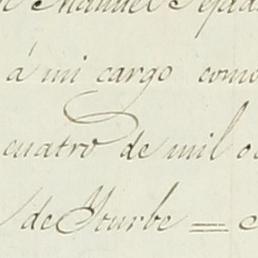 Manuel Tejad
á mi cargo como
cuatro de mil o
de Yturbe =